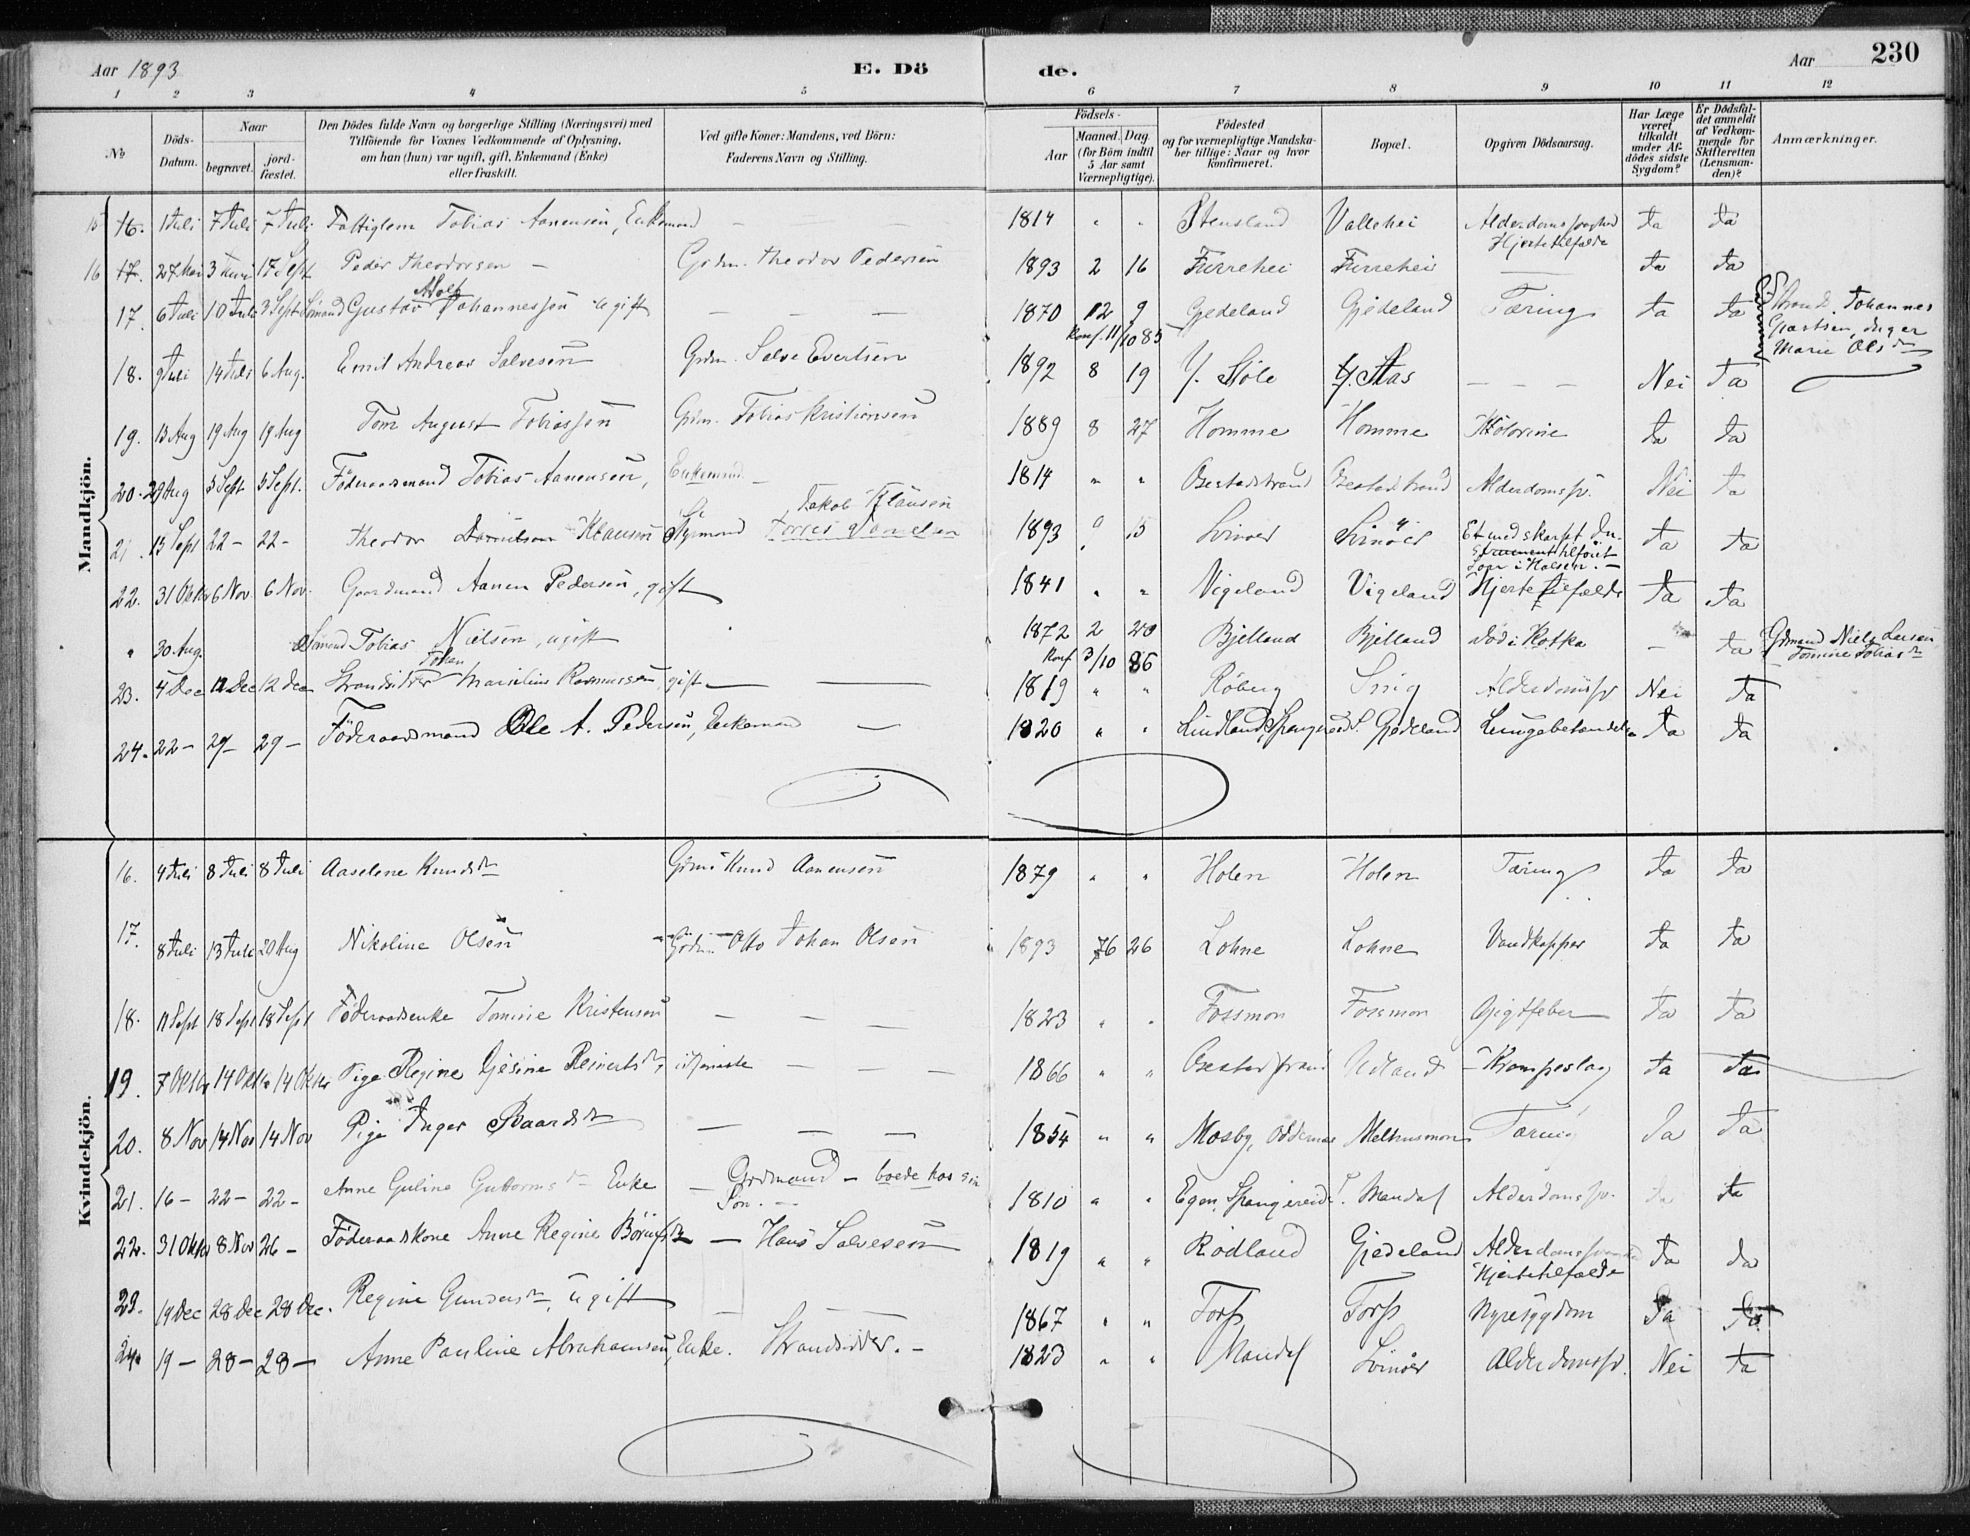 Aar 1893
E. Dö
de.
Aar
230
1 2 3 4 5 6 7 8 9 10 11 12
No
Döds-Datum.
Naar
begravet.
jord-fæstet.
Den Dödes fulde Navn og borgerlige Stilling (Næringsvei) med
Tilföiende for Voxnes Vedkommende af Oplysning,
om han (hun) var ugift, gift, Enkemand (Enke)
eller fraskilt.
Ved gifte Koner: Mandens, ved Börn:
Faderens Navn og Stilling.
Födsels-
Aar
Maaned. Dag.
(for Börn indtil
5 Aar samt
Værnepligtige).
Födested
og for værnepligtige Mandska-
ber tillige: Naar og hvor
konfirmeret.
Bopæl.
Opgiven Dödsaarsag.
Har Læge
været
tilkaldt
under Af-
dödes sidste
Sygdom?
Er Dödsfal-
det anmeldt
af Vedkom-
mende for
Skifteretten
(Lensman-
den)?
Anmærkninger.
Mandkjön.
15 16. 1 Juli 7 Juli 7 Juli Fattiglem Tobias Aanensen, Enkemand — — 1814 " " Stensland Vallehei Alderdomssvaghed Hjertetilfælde Ja Ja
16 17. 27 Mai 3 Juni 17 Sept Peder Theodorsen — Grdm. Theodor Pedersen 1893 2 16 Furrehei Furrehei — Ja Ja
17. 6 Juli 10 Juli 3 Sept Sömand Gustav Adolf Johannessen ugift — — — 1870 12 9 Gjedeland Gjedeland Tæring Ja Ja
Konf. 11/10 85
Strands. Johannes
Inger
Marie Olsdr
18. 9 Juli 14 Juli 6 Aug. Emil Andreas Salvesen Grdm. Salve Evertsen 1892 8 19 Y. Stöle Y. Aas — — — Nei Ja
19. 13 Aug 19 Aug 19 Aug Tom August Tobiassen Grdm. Tobias Kristiansen 1889 8 27 Homme Homme Kolorine Ja Ja
20. 29 Aug 5 Sept 5 Sept. Föderaadsmand Tobias Aanensen, Enkemand — 1814 " " Oxestadstrand Oxestadstrand Alderdomssv. Nei Ja
21. 15 Sept 22 — 22 — Theodor Danielsen Klausen Styrmand Jakob Klausen Torres Danielsen 1893 0 15 Svinöer Svinöer Et med skarpt In-
strument tilföiet
Saar i Halsen. — Ja Ja
22. 31 Oktbr 6 Nov. 6 Nov. Gaardmand Aanen Pedersen, gift 1841 " " Vigeland Vigeland Hjertetilfælde Ja Ja
" 30 Aug. Sömand Tobias Nielsen, ugift 1872 2 20 Bjelland Bjelland Död i Kotka — Ja Grdmand Niels Larsen
Konf 3/10 86
Tomine Tobiasdr
23. 4 Dec 12 Dec 12 Dec Strandsidder Johan Marselius Rasmussen, gift — — 1819 " " Röberg Snig Alderdomssv Nei Ja
24. 22 — 29 — 29 — Föderaadsmand Ole A. Pedersen, Enkemand — 1820 " " Lindland, Spangereid S. Gjedeland Lungebetændelse Ja Ja
Kvindekjön.
16. 4 Juli 8 Juli 8 Juli Aaselene Knudsdr Grdm. Knud Aanensen 1879 " " Holen Holen Tæring Ja Ja
17. 8 Juli 13 Juli 20 Aug Nikoline Olsen Grdm. Otto Johan Olsen 1893 6 26 Lohne Lohne Vandkopper Ja Ja
18. 11 Sept 18 Sept 18 Sept Föderaadsenke Tomine Kristensen — — — 1823 " " Fossmon Fossmon Gigtfeber Ja Ja
19. 7 Oktbr 14 Oktbr 14 Oktbr Pige Regine Gjesine Reinertsdr, i tjeneste — — — 1866 " " Oxestadstrand Udland Krampeslag Ja Ja
20. 8 Nov 14 Nov 14 Nov Pige Inger Baardsdr — — — 1854 " " Mosby, Oddernæs Melhusmon Tæring Ja Ja
21. 16 — 22 — 22 — Anne Guline Guttormsdr Enke — Grdmand — boede hos sin
Sön. — 1810 " " Egen, Spangereid Mandal Alderdomssv. Ja Ja
22. 31 Oktbr 8 Nov 26 — Föderaadskone Anne Regine Börufsdr — Hans Salvesen 1819 " " Rödland Gjedeland Alderdomssvaghed
Hjertetilfælde Ja Ja
23. 19 Dec 28 Dec 28 Dec. Regine Gundersdr, ugift — — 1867 " " Torp Torp Nyresygdom Ja Ja
24. 19 — 28 — 28 — Anne Pauline Abrahamsen, Enke. Strandsidder. — 1823 " " Mandal Svinöer Alderdomssv. Nei Ja